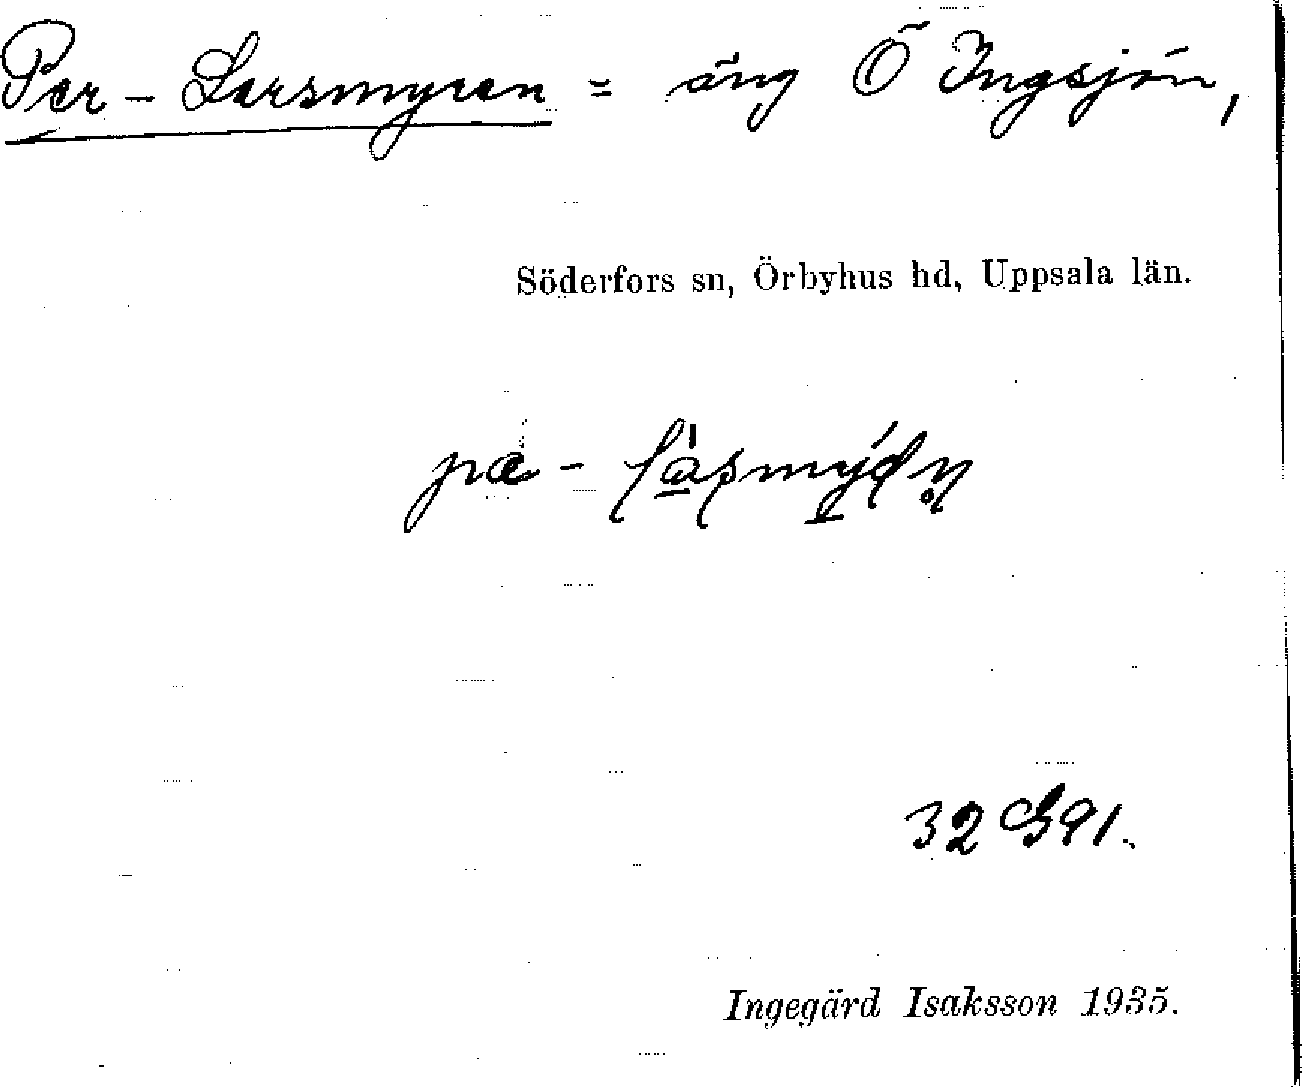 Per-Larsmyren = äng Ö Ingsjön,
Söderfors sn, Örbyhus hd, Uppsala län.
32 G91.
Ingegärd Isaksson 1935.